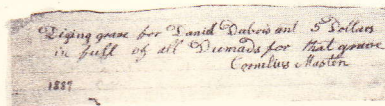 Diging grave for David Dubois ant 5 Dollars
in full of all Dumads for that grave
Cornilius Masten
1889